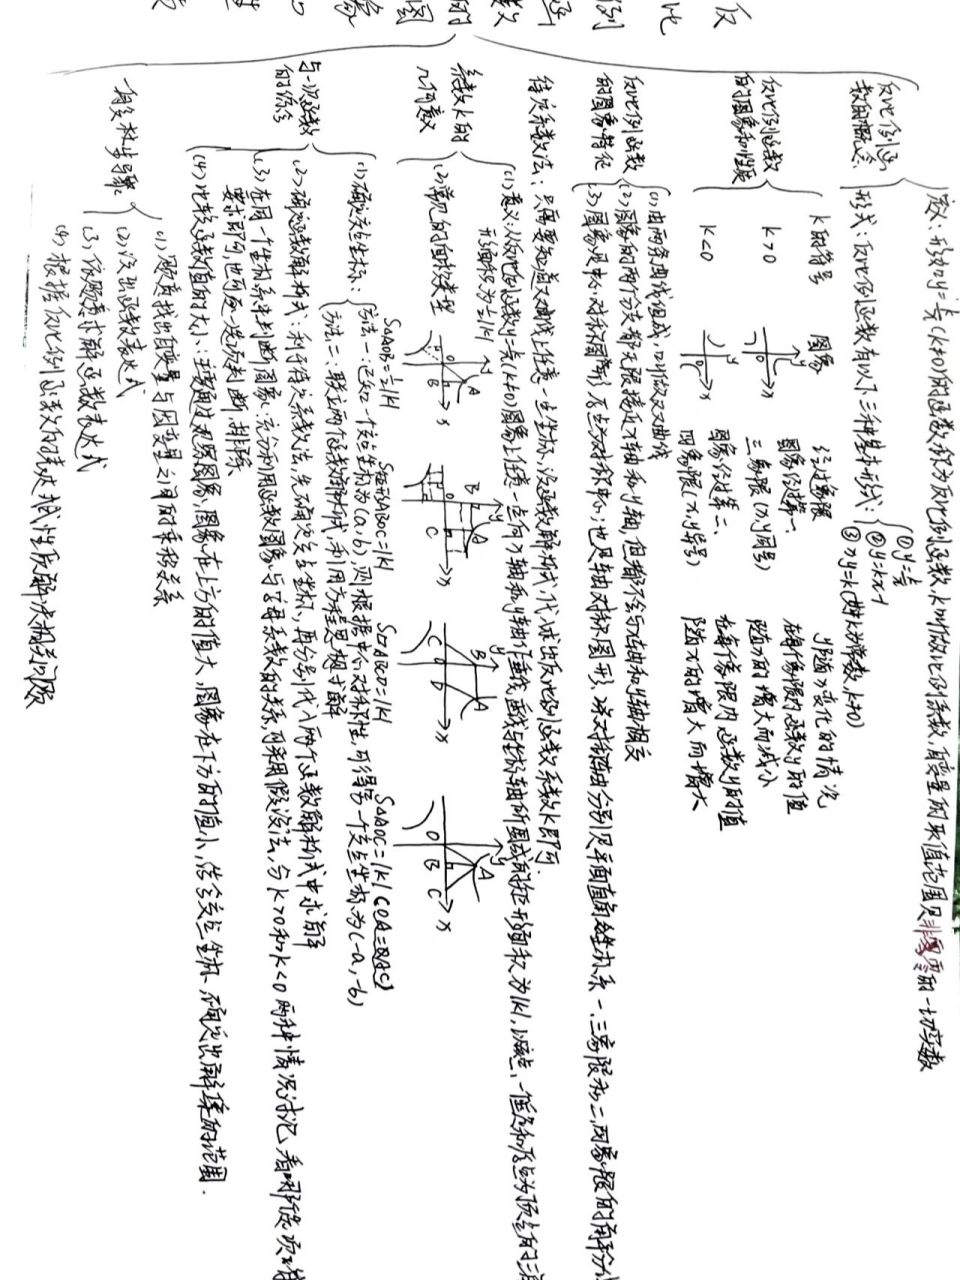 定义：形如y=k/x(k≠0)的函数称为反比例函数,k叫做比例系数,自变量的取值范围是非零的一切实数
反比例函数的概念
形式：反比例函数有以下三种基本形式：
①y=k/x
②y=kx-1
③xy=k(其中k为常数,k≠0)
反比例函数的图象和性质
k的符号 图象 经过象限 y随x变化的情况
k>0 图象经过第一、三象限(x,y同号) 在每个象限内函数y的值随x的增大而减小
k<0 图象经过第二、四象限(x,y异号) 在每个象限内,函数y的值随x的增大而增大
反比例函数的图象特征
(1)由两条曲线组成,叫做双曲线
(2)图象的两个分支都无限接近x轴和y轴,但都不会与x轴和y轴相交
(3)图象是中心对称图形,原点为对称中心;也是轴对称图形,
待定系数法：只需要知道双曲线上任意一点坐标,设函数解析式,代入求出反比例函数系数k即可.
系数k的几何意义
(1)意义:从反比例函数y=k/x(k≠0)图象上任意一点向x轴和y轴作垂线,垂线与坐标轴所围成的矩形面积为|k|,
形面积为½|k|
(2)常见的面积类型
S△AOB=½|k| S矩形ABOC=|k| S▱ABCD=|k| S△AOC=|k|
与一次函数的综合
(1)确定交点坐标：
方法一:已知一个交点坐标为(a,b),则根据中心对称性,可得另一个交点坐标为(-a,-b)
方法二:联立两个函数解析式,利用方程思想求解
(2)确定函数解析式：利用待定系数法,先确定交点坐标,再分别代入两个函数解析式中求解
(3)在同一个坐标系中判断图象:充分利用函数图象与各系数的关系,可采用假设法,分k>0和k<0两种情况讨论,看哪个选项
要求即可,也可逐一选项判断、排除.
(4)比较函数值的大小:主要通过观察图象,图象在上方的值大,图象在下方的值小,结合交点坐标,确定出解集的范围.
(1)题意找出自变量与因变量之间的乘积关系
(2)设出函数表达式
(3)依题意求解函数表达式
(4)根据反比例函数的表达式或性质解决相关问题